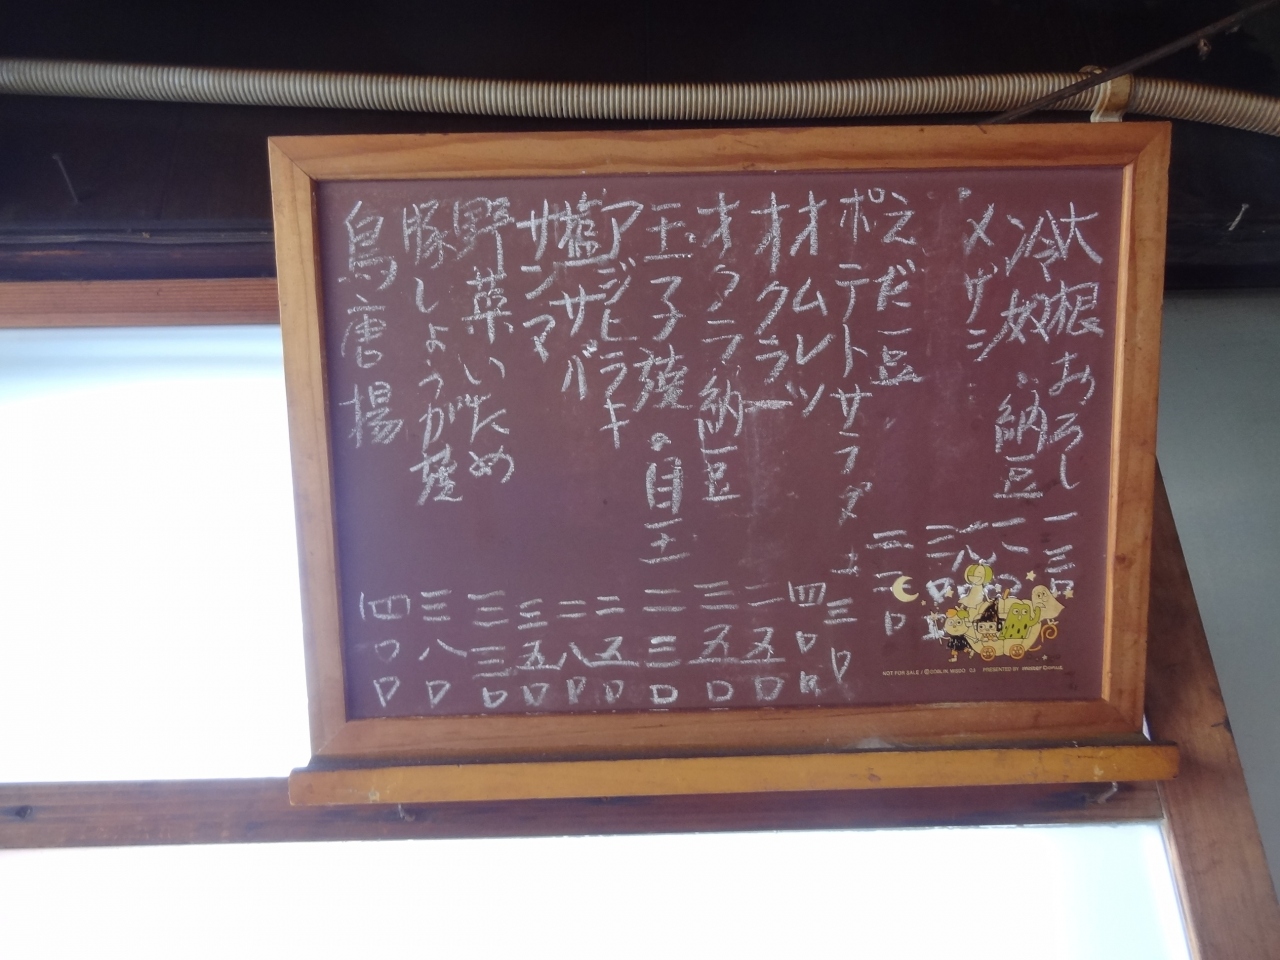 大根おろし 一三〇
冷奴 納豆 一八〇
メザシ
えだ豆
ポテトサラダ 三〇
オムレツ 四〇
オクラ 二五〇
オクラ納豆 三五〇
玉子焼 目玉 二三〇
アジヒラキ 二五〇
塩サバ 二八〇
サンマ 三五〇
野菜いため 三三〇
豚しょうが焼 三八〇
鳥唐揚 四〇〇
NOT FOR SALE
PRESENTED BY